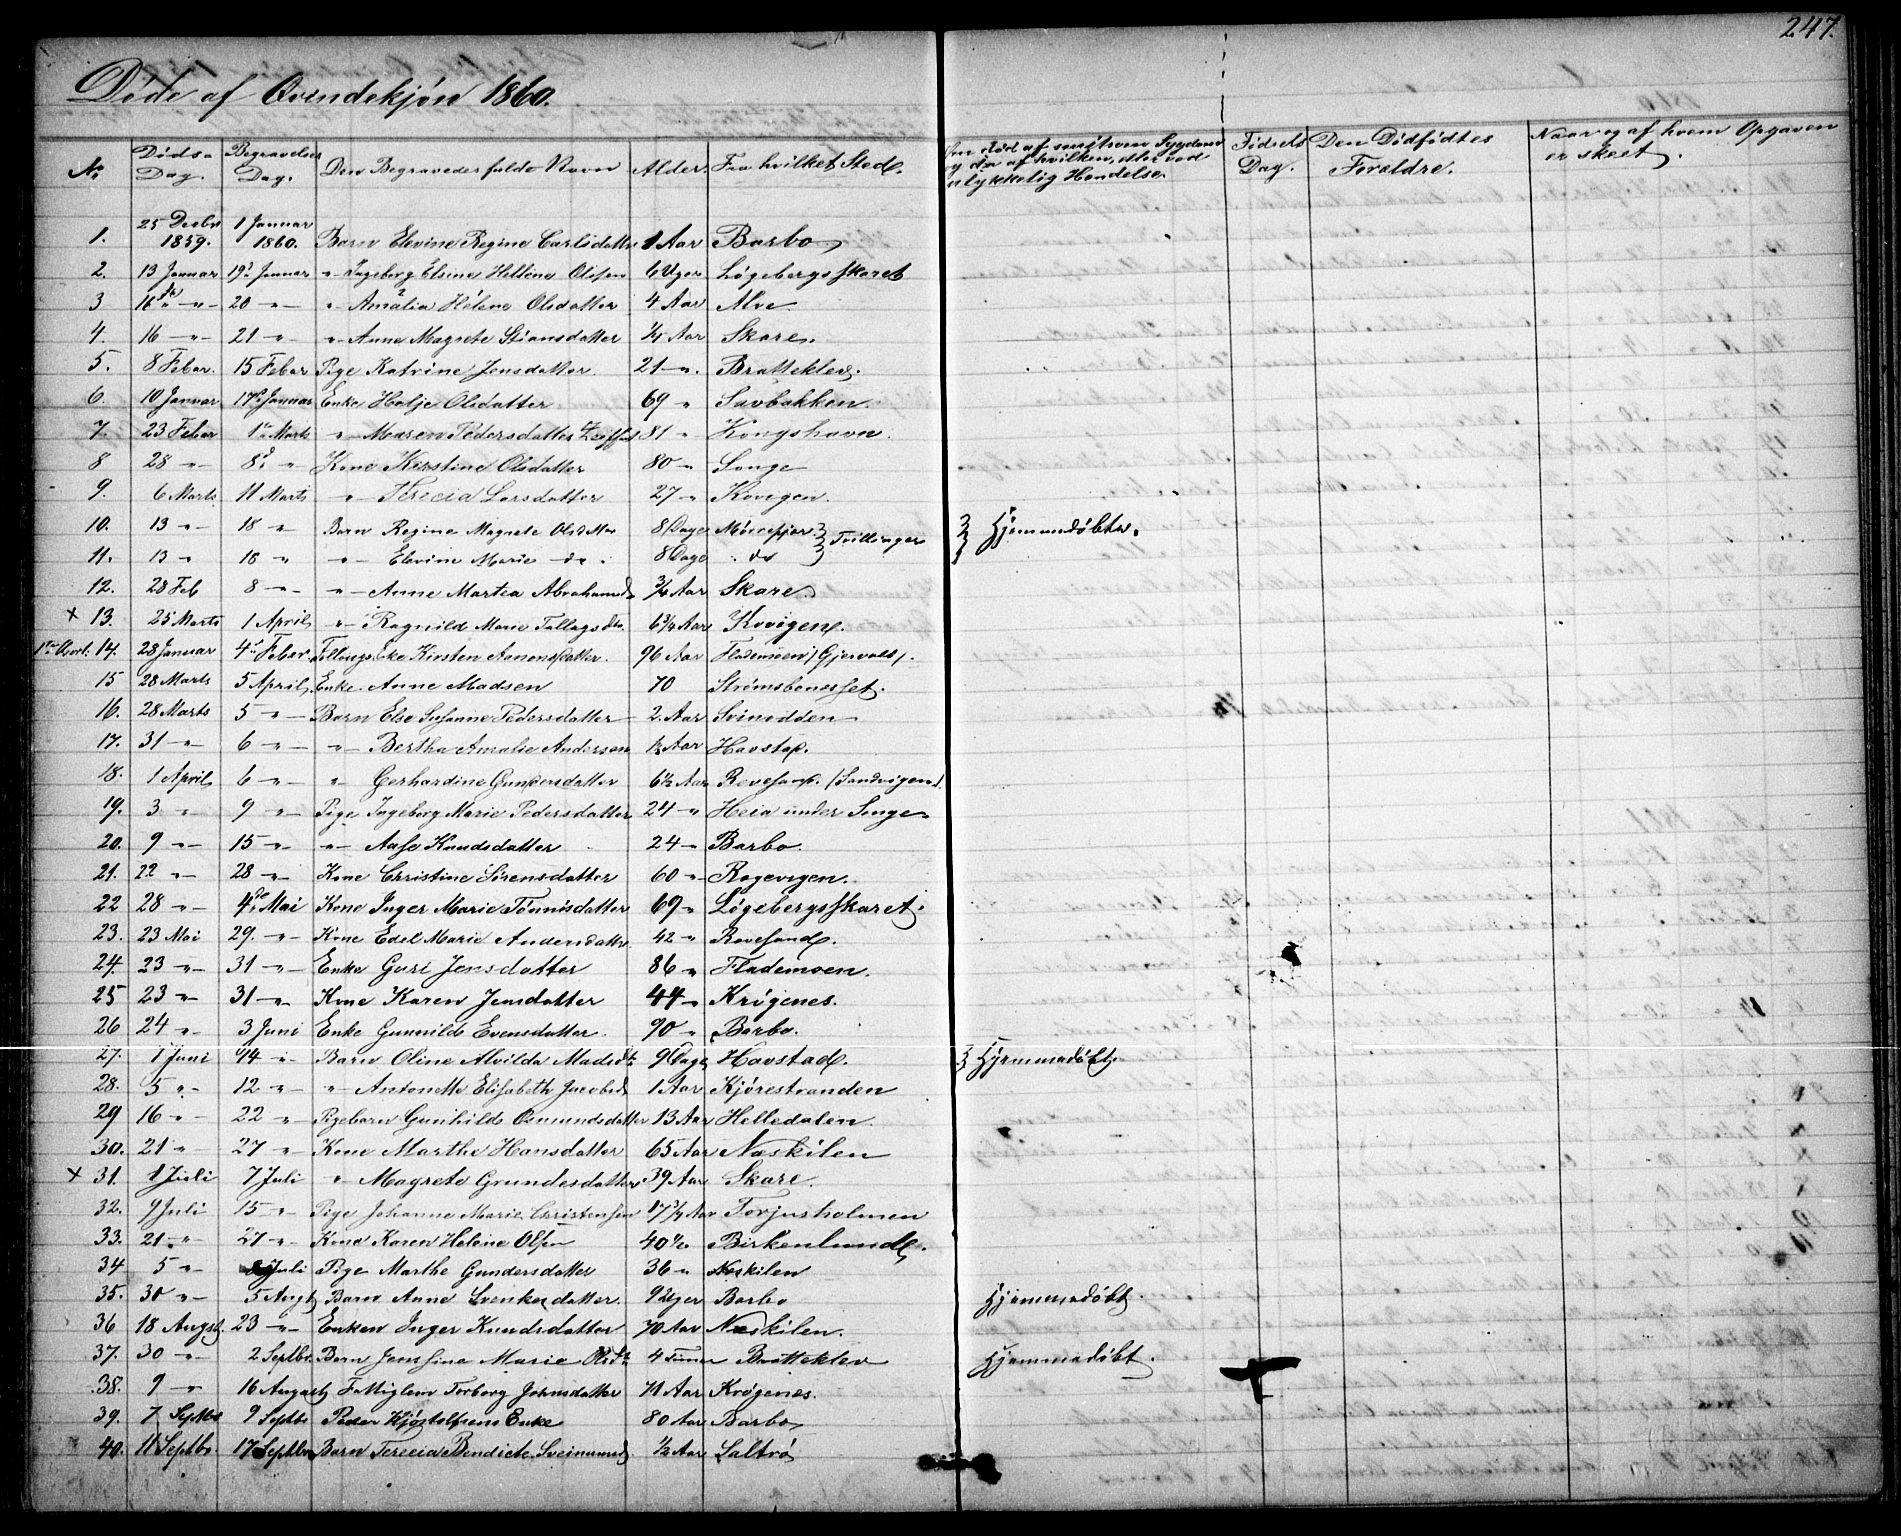 247.
Døde af Qvindekjøn 1860.
No Døds-Dag. Begravelses Dag. Den Begravedes fulde Navn Alder. Fra hvilket Sted. Om død af smitsom Sygdom og da af hvilken, eller ved ulykkelig Hendelse. Fødsels Dag. Den Dødfødtes Forældre. Naar og af hvem Opgaven er skeet.
1. 25 Desbr 1859. 1 Januar 1860. Barn Elevine Regine Carlsdatter 1 Aar Barbo
2. 13 Januar 19 Januar " Ingeborg Elene Helline Olsen 6 Uger Løgebergsskaret
3 16 " 20 " " Amalia Helene Olsdatter 4 Aar Alve
4. 16 " 21 " " Anne Magrete Stiansdatter 1/4 Aar Skare.
5. 8 Febar. 15 Febar Pige Katrine Jensdatter 21 " Bratteklev.
6. 10 Januar 17 Januar Enke Helje Olsdatter 69 " Savbakken.
7. 23 Febar 1 Marts " Maren Pedersdatter 81 " Kongshavn.
8 28 " 8 " Kone Kirstine Olsdatter 80 " Songe
9. 6 Marts 11 Marts " Terecia Larsdatter 27 " Kovigen.
10. 13 " 18 " Barn Regine Magrete Olsdatter 8 Dage Tvillinger Hjemmedøbte.
11. 13 " 18 " " Elevine Marie do 8 Dage do
12. 28 Feb 8 " " Anne Martea Abrahamsd 3/4 Aar Skare
x 13. 25 Marts 1 April " Ragnild Marie Tallagsdtr. 6 3/4 Aar Kovigen.
14. 28 Januar 4 Febar Kirsten Aanonsdatter. 96 Aar Flademoen (Gjervols).
15 28 Marts 5 April Enke Anne Madsen 70 Strømsbonesset.
16. 28 Marts 5 " Barn Else Susanne Pedersdatter 2 Aar Svinodden
17. 31 " 6 " " Bertha Amalie Andersen 1/2 Aar Havstad.
18. 1 April 6 " " Gerhardine Gundersdatter 6 1/2 Aar Revesand. (Sandvigen).
19. 3 " 9 " Pige Ingeborg Marie Pedersdatter 24 " Heia under Songe
20. 9 " 15 " " Aase Knudsdatter 24 " Barbo.
21. 22 " 28 " Kone Christine Sørensdatter 60 " Ragevigen.
22 28 " 4 Mai Kone Inger Marie Tønnisdatter 69 " Løgebergsskaret.
23. 23 Mai 29. " Kone Edel Marie Andersdatter 42 " Revesand.
24. 23 " 31 " Enke Guri Jensdatter 86 " Flademoen.
25 23 " 31 " Kone Karen Jensdatter 44 " Krøgenes.
26 24 " 3 Juni Enke Gunnild Evensdatter. 90 " Barbo.
27. 1 Juni 14 " Barn Oline Alvilda Madsdtr 9 Dage Havstad. Hjemmedøbt.
28. 5 " 12 " " Antonette Elisabeth Jacobsd 1 Aar Kjørestranden
29 16 " 22 " Pigebarn Gunhild Osmundsdatter 13 Aar Helledalen.
30. 21 " 27 " Kone Marthe Hansdatter 65 Aar Næskilen
x 31. 1 Juli 7 Juli " Magrete Grundesdatter 39 Aar Skare.
32. 9 Juli 15 " Pige Johanne Marie Christensen 17 3/4 Aar Torjusholmen
33. 21 " 27 " Kone Karen Helene Olsen 40 1/2 Birkenlund.
34 5 " Juli Pige Marthe Gundersdatter 36 " Neskilen
35. 30 " 5 Augt Barn Anne Svenkesdatter. 9 Uger Barbo Hjemmedøbt.
36 18 Augst 23 " Enken Inger Knudsdatter 70 Aar Næskilen.
37. 30 " 2 Septbr. Barn Jensine Marie Olsdtr 4 Timer Bratteklev Hjemmedøbt.
38. 9 " 16 August Fattiglem Torborg Johnsdatter 71 Aar Krøgenes.
39. 7 Septbr 9 Septbr Peder Kjøstelsens Enke 80 Aar Barbo
40. 11 Septbr. 17 Septbr Barn Terecia Bendicte Sveinunsd 1/2 Aar Saltrø